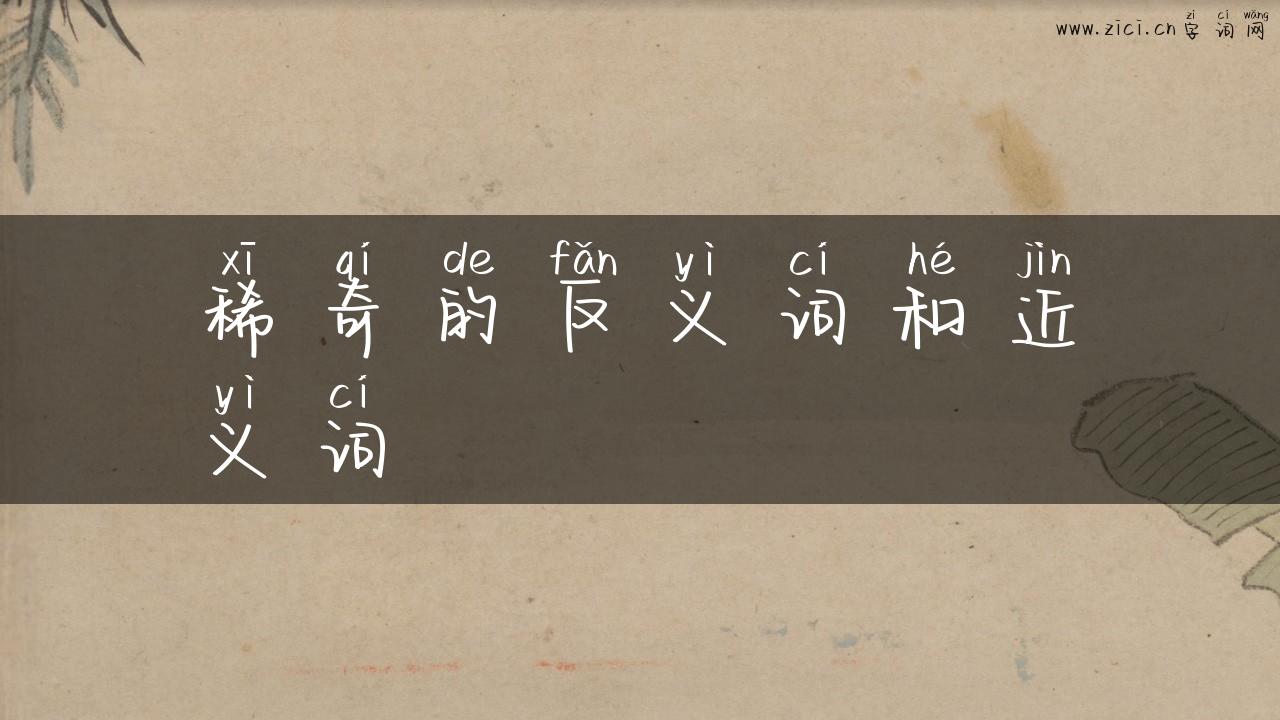 zì cí wǎng
www.zici.cn 字词网
xī qí de fǎn yì cí hé jìn
稀奇的反义词和近
yì cí
义词